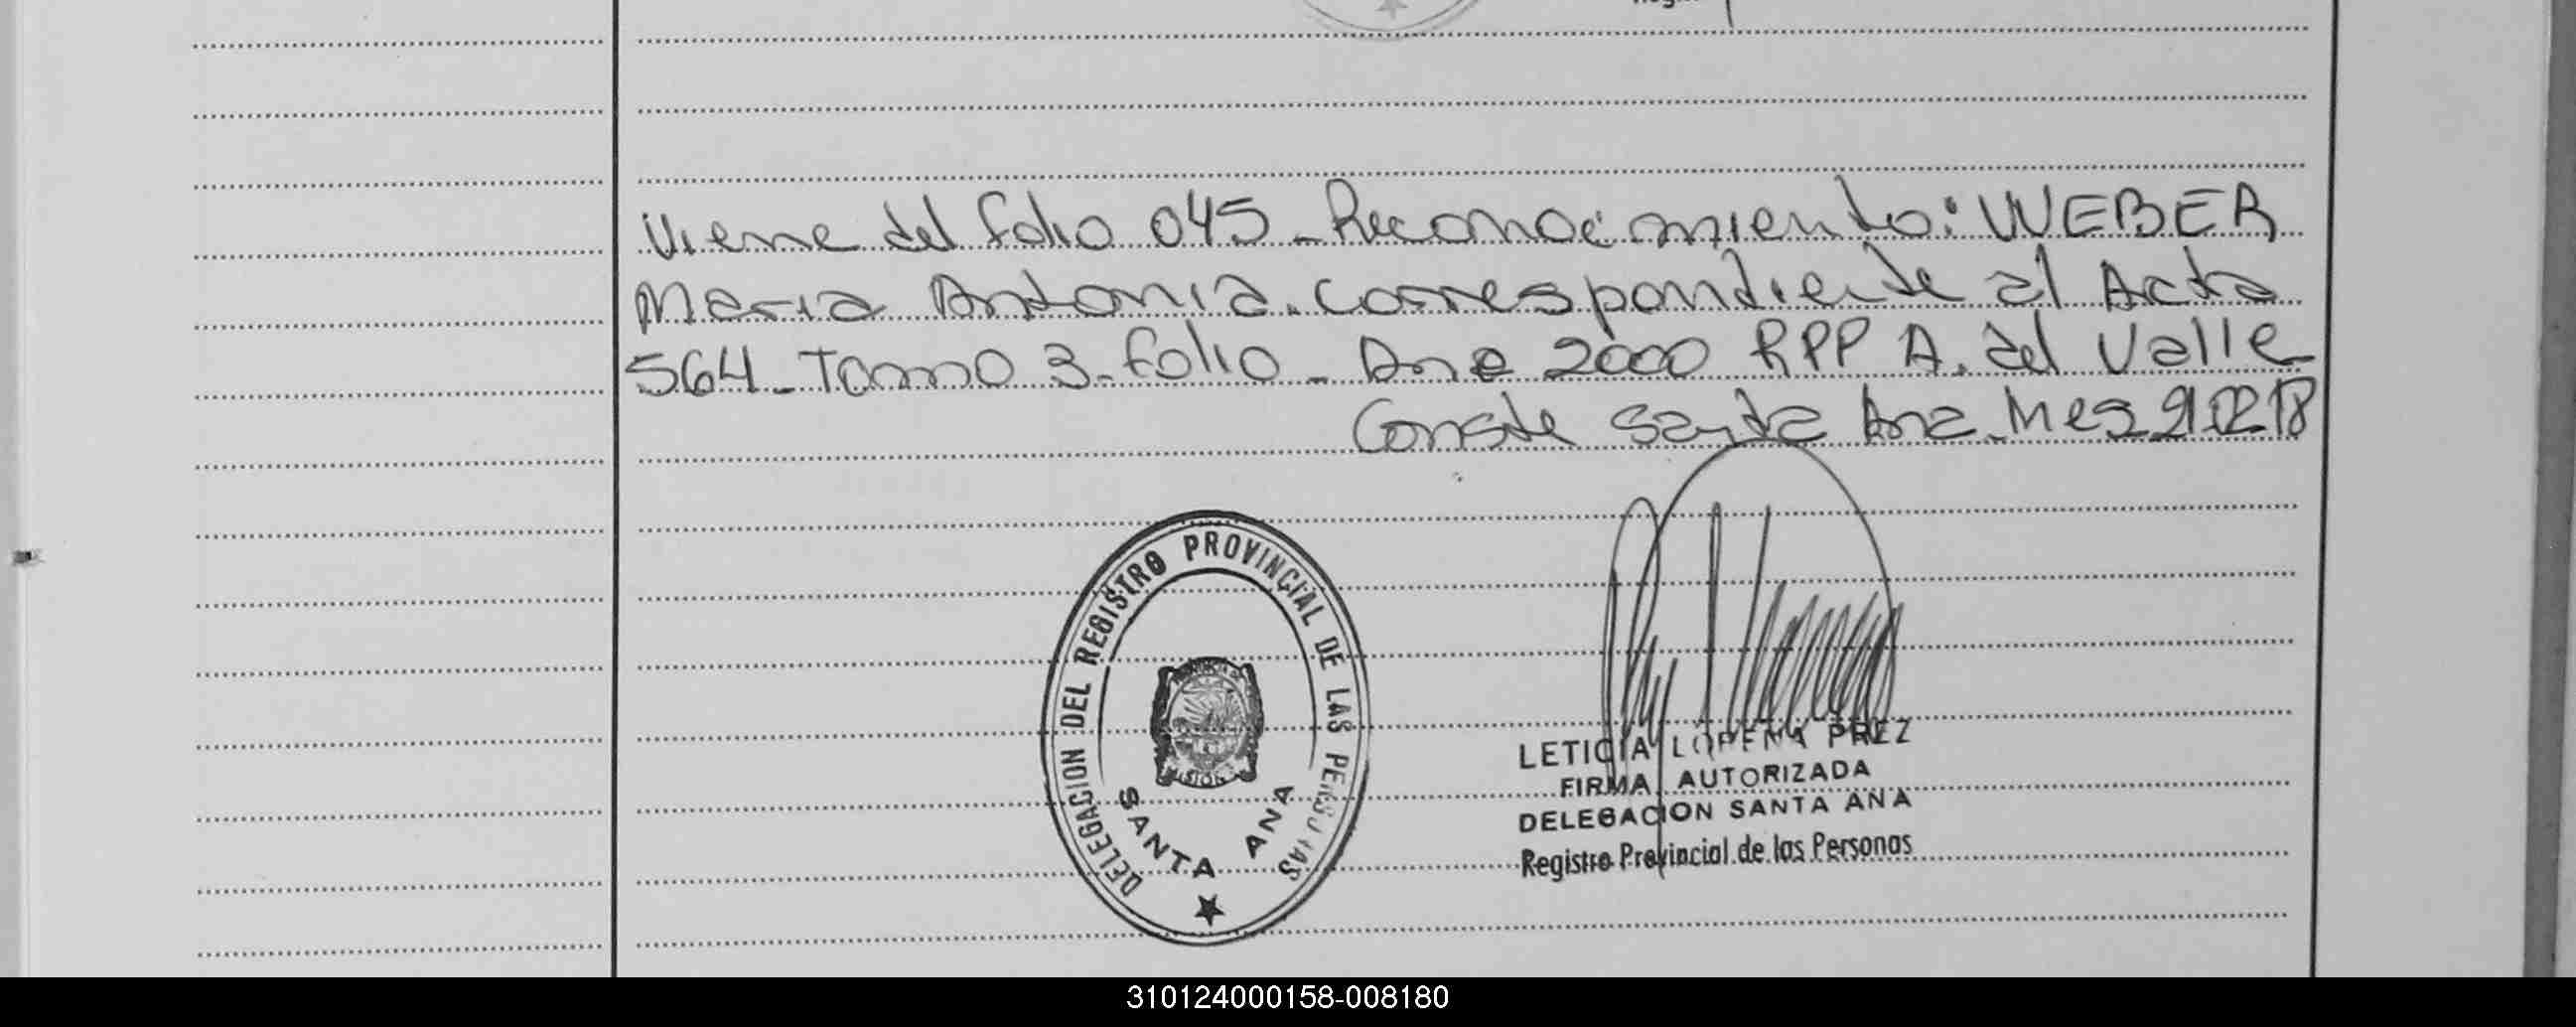 Viene del folio 045 - Reconocimiento: WEBER
Maria Antonia. correspondiente al Acta
564 - Tomo 3 - folio - Ano 2000 RPP A. del Valle
Conste Santa Ana - Mes 21 02 18
DELEGACION DEL REGISTRO PROVINCIAL DE LAS PERSONAS
SANTA ANA
LETICIA LORENA PREZ
FIRMA AUTORIZADA
DELEGACION SANTA ANA
Registro Provincial de las Personas
310124000158-008180